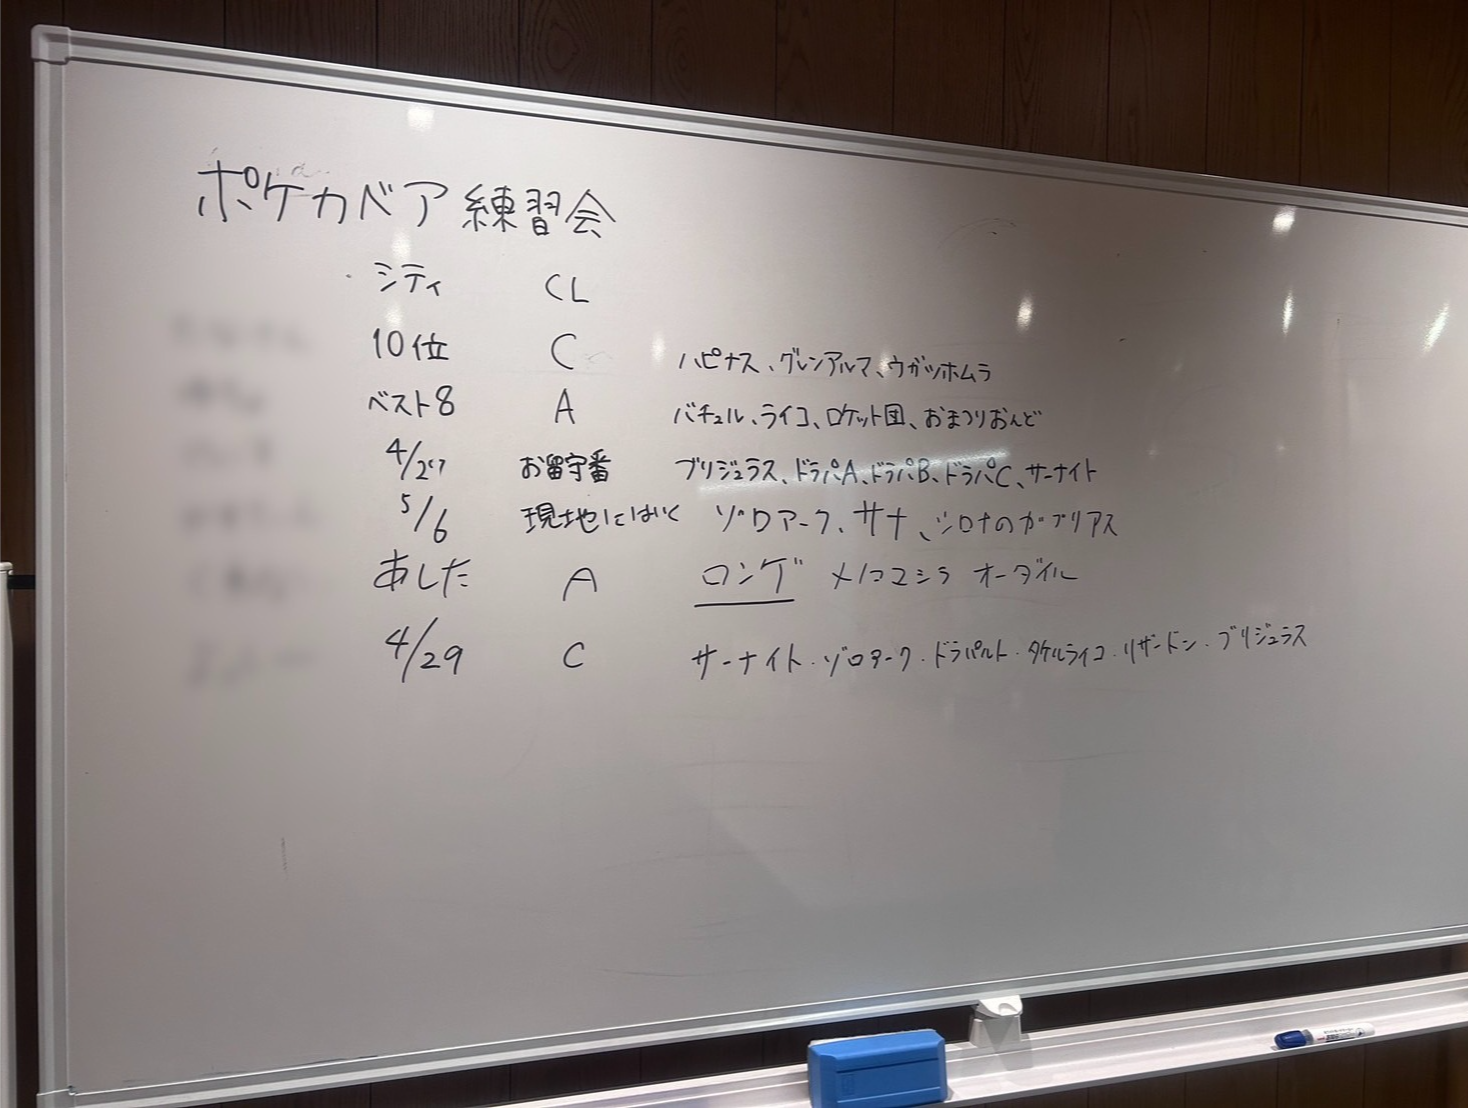 ポケカベア練習会
シティ CL
10位 C ハピナス、グレンアルマ、ウガツホムラ
ベスト8 A バチュル、ライコ、ロケット団、おまつりおんど
4/27 お留守番 ブリジュラス、ドラパA、ドラパB、ドラパC、サーナイト
5/6 現地にはいく ゾロアーク、サナ、シロナのガブリアス
あした A ロンゲ オーダイル
4/29 C サーナイト・ゾロアーク・ドラパルト・タケルライコ・リザードン・ブリジュラス